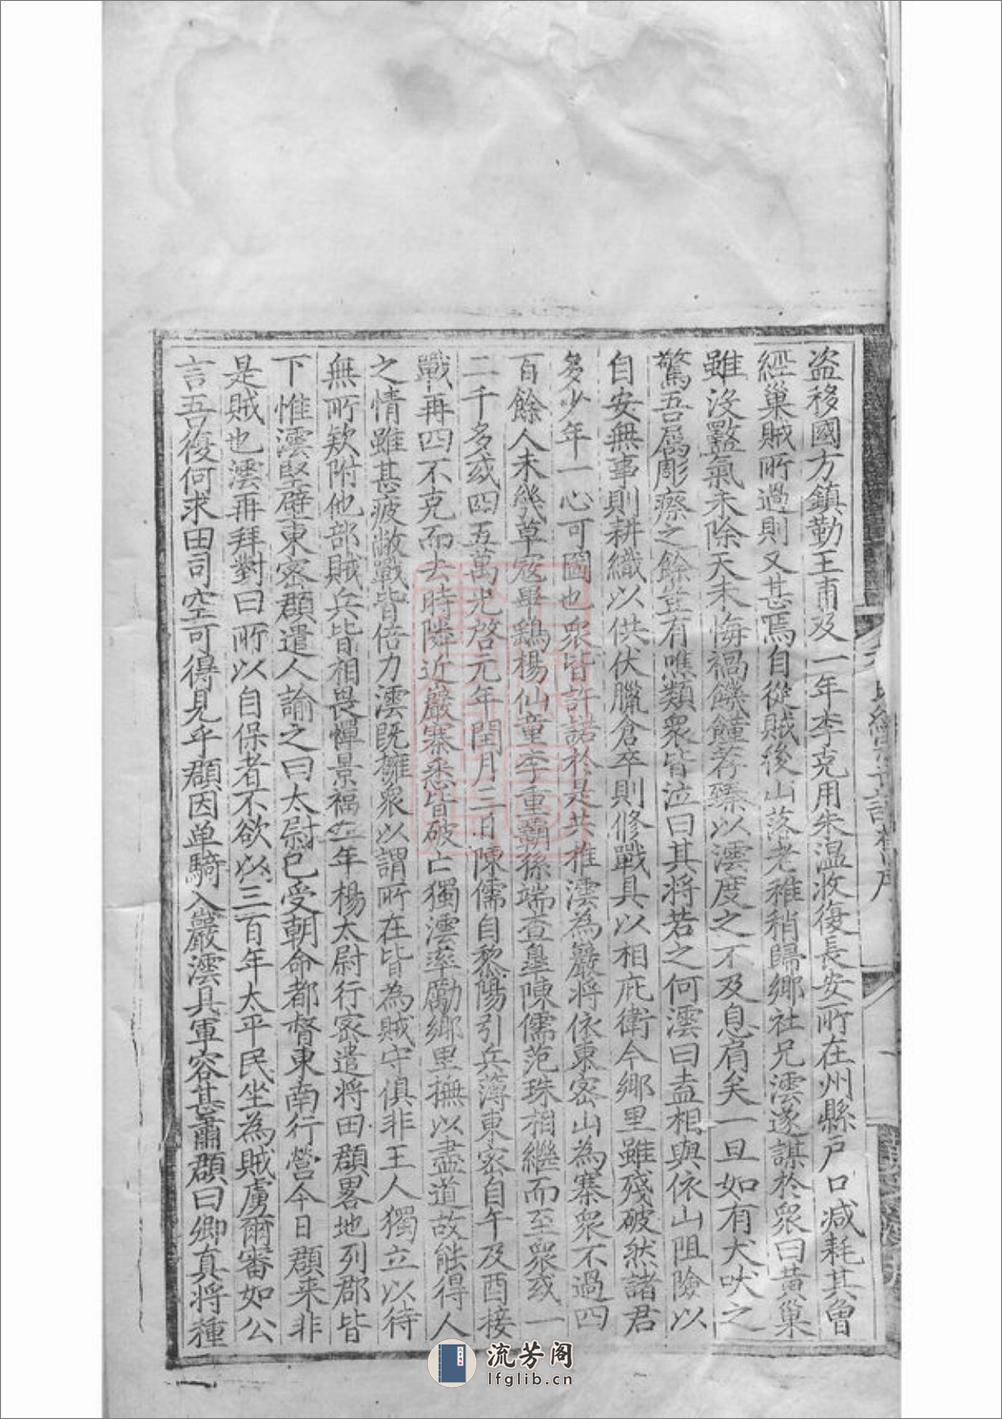 盗移國方鎮勤王甫及一年李克用朱温收復長安所在州縣戶口減耗其曾
經巢賊所過則又甚焉自從賊後山落老稚稍歸鄉社兄澐遂謀於衆曰黄巢
雖沒㸃氣未除天未悔禍饑饉荐臻以澐度之不及息肩矣一旦如有犬吠之
驚吾属彫瘵之餘豈有噍類衆皆泣曰其將若之何澐曰盍相與依山阻險以
自安無事則耕織以供伏臘倉卒則修戰具以相庇衛今鄉里雖殘破然諸君
多少年一心可圖也衆皆許諾於是共推澐為巖將依東密山為寨衆不過四
百餘人未幾草寇畢鷂楊仙童李重霸孫端查皐陳儒范珠相繼而至衆或一
二千多或四五萬光啓元年閏月二日陳儒自黟陽引兵薄東密自午及酉接
戰再四不克而去時隣近巖寨悉皆破亡獨澐率勵鄉里撫以盡道故能得人
之情雖甚疲敝戰皆倍力澐既擁衆以謂所在皆為賊守俱非王人獨立以待
無所欵附他部賊兵皆相畏憚景福二年楊太尉行密遣將田頵畧地列郡皆
下惟澐堅壁東密頵遣人諭之曰太尉已受朝命都督東南行營今日頵来非
是賊也澐再拜對曰所以自保者不欲以三百年太平民坐為賊虜爾審如公
言吾復何求田司空可得見乎頵因单騎入巖澐具軍容甚肅頵曰卿真將種
流芳阁
lfglib.cn